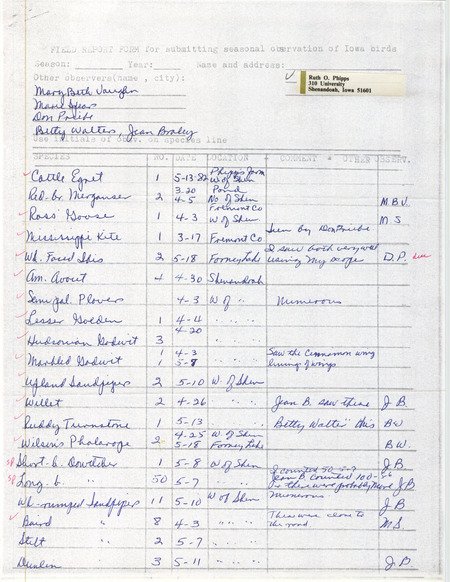 FIELD REPORT FORM for submitting seasonal observation of Iowa birds
Season: Year: Name and address:
Ruth O. Phipps
310 University
Shenandoah, Iowa 51601
Other observers(name , city):
Mary Beth Vaughn
Marie Spears
Don Priebe
Betty Walters, Jean Braley
Use initials of obsv. on species line
SPECIES NO. DATE LOCATION COMMENT OTHER OBSERV.
Cattle Egret 1 5-13-82 Phipps farm W of Shen
Red-br. Merganser 2 3-20 4-5 Pond No of Shen M.B.V.
Ross' Goose 1 4-3 Fremont Co W of Shen M.S.
Mississippi Kite 1 3-17 Fremont Co Seen by Don Priebe
Wh. Faced Ibis 2 5-18 Forney Lake I saw both very well using my scope D.P.
Am. Avocet 4 4-30 Shenandoah
Semipal. Plovers 4-3 W of " Numerous
Lesser Golden 1 4-11 " " "
Hudsonian Godwit 3 4-20
Marbled Godwit 1 4-3 1 5-8 " " " Saw the cinnamon wing lining of wings
Upland Sandpipers 2 5-10 W. of Shen
Willet 2 4-26 " " " Jean B. saw these J.B.
Ruddy Turnstone 1 5-13 " " " Betty Walters this B.W.
Wilson's Phalarope 2 4-25 W of Shen 5-18 Forney Lake B.W.
sp Short b. Dowitcher 1 5-8 W of Shen J.B.
sp Long b. " 50 5-7 " " " I counted 50 5-7 Jean B. counted 100 J.B.
Wh-rumped Sandpipers 11 5-10 W of Shen Numerous J.B.
Baird " 8 4-3 " " " These were close to the road M.S.
Stilt " 2 5-7 " " "
Dunlin 3 5-11 " " " J.B.